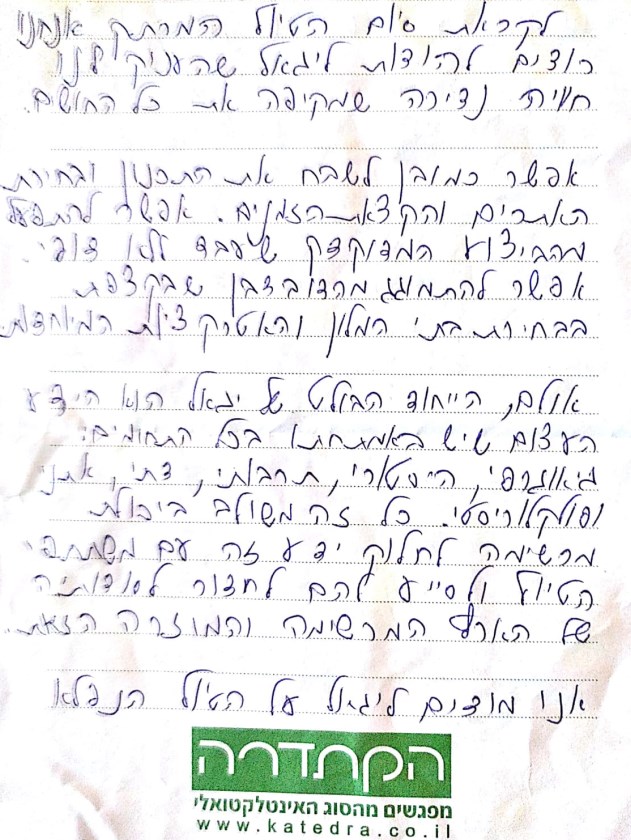 לקראת סיום הטיול המרתק אנחנו
רוצים להודות ליגאל שהעניק לנו
חוויה נדירה שמקיפה את כל החושים.
אפשר כמובן לשבח את התכנון ובחירת
האתרים והקצאת הזמנים. אפשר להתפעל
מהביצוע המדוקדק שעבד ללא דופי.
אפשר להתמוגג מהדובדבן שבקצפת
בבחירת בתי המלון והאטרקציות המיוחדות
אולם, הייחוד הבולט של יגאל הוא הידע
העצום שיש באמתחתו בכל התחומים:
גיאוגרפי, היסטורי, תרבותי, דתי, אתני
ופולקלוריסטי. כל זה משולב ביכולת
מרשימה לחלוק ידע זה עם משתתפי
הטיול ולסייע להם לחדור לסודותיה
של הארץ המרשימה והמוזרה הזאת.
אנו מודים ליגאל על הטיול הנפלא
הקתדרה
מפגשים מהסוג האינטלקטואלי
www.katedra.co.il